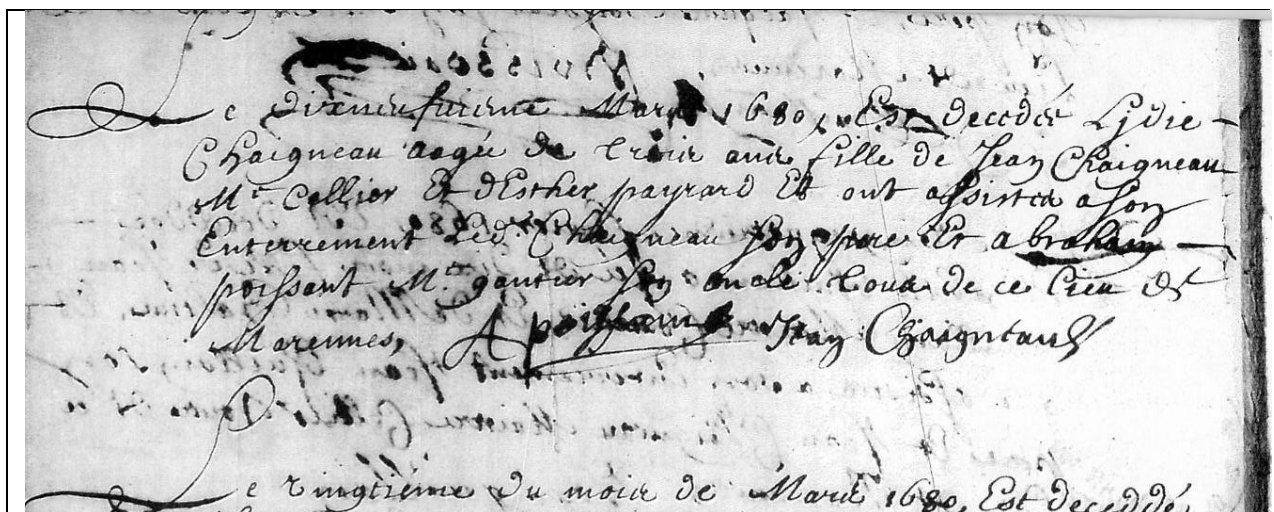 Le dixneufuieme Mars 1680, Est decedée Lydie
Chaigneau aagée de trois ans fille de Jean Chaigneau
Mr. Cellier Et dEsther payrard Et ont assisté a son
Enterrement Led. Chaigneau son pere Et abraham
poissant Mr. gantier son oncle tous de ce lieu de
Marennes,
A poissant Jean Chaigneau
Le vingtiéme du mois de Mars 1680, Est deceddé